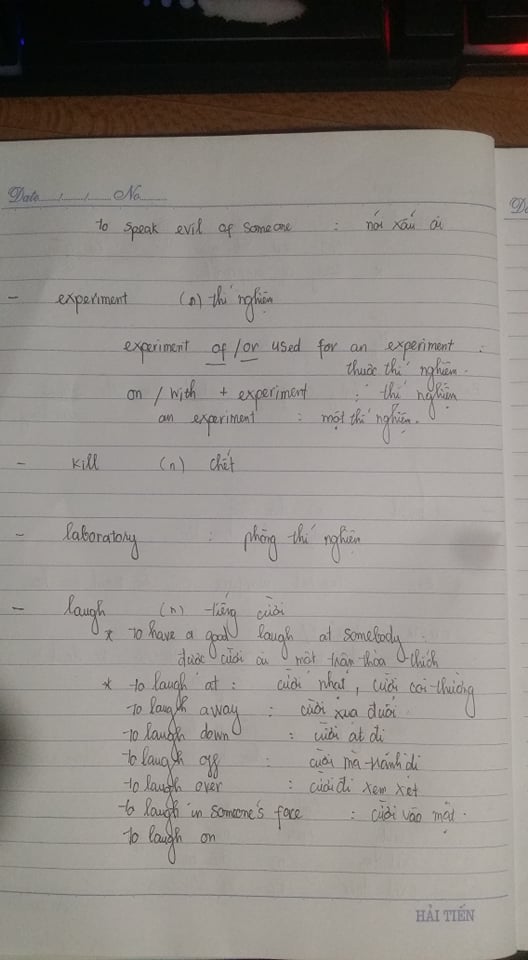 Date / / No
to speak evil of someone : nói xấu ai
- experiment (n) thí nghiệm
experiment of / or used for an experiment :
thuộc thí nghiệm.
on / with + experiment : thí nghiệm
an experiment : một thí nghiệm.
- kill (n) chết
- laboratory : phòng thí nghiệm
- laugh (n) tiếng cười
* to have a good laugh at somebody :
được cười ai một trận thỏa thích
* to laugh at : cười nhạt, cười coi thường
to laugh away : cười xua đuổi
to laugh down : cười át đi
to laugh off : cười mà tránh đi
to laugh over : cười đi xem xét
to laugh in someone's face : cười vào mặt.
to laugh on
HẢI TIẾN